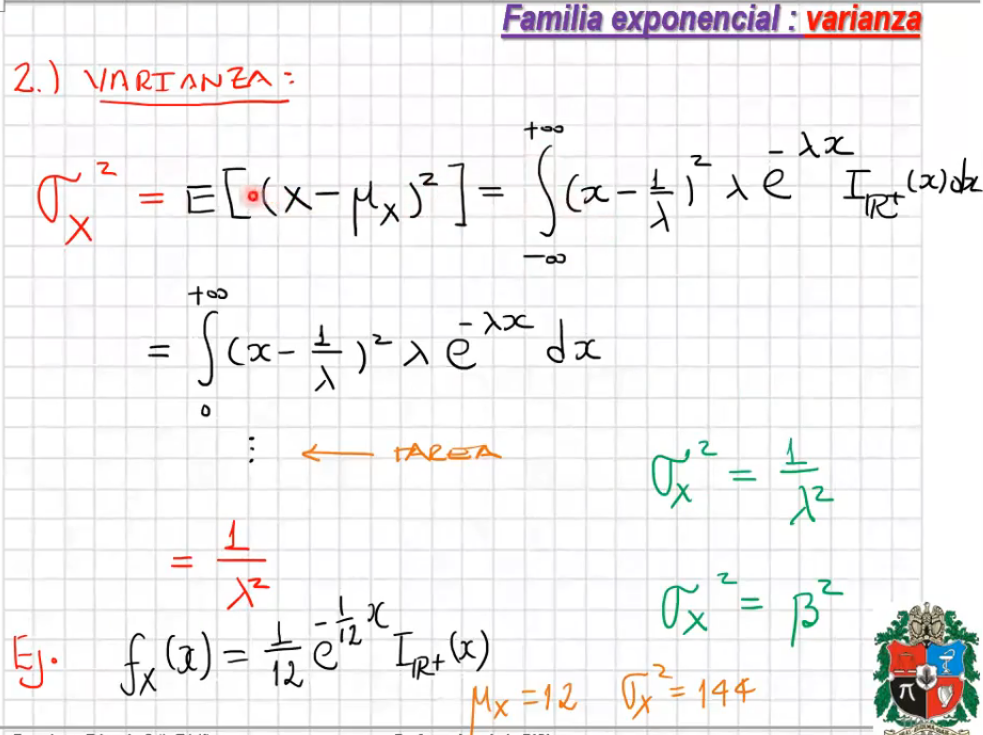 Familia exponencial : varianza
2.) VARIANZA:
σ_X² = E[(X-μ_X)²] = ∫_{-∞}^{+∞} (x - 1/λ)² λ e^{-λx} I_{ℝ⁺}(x)dx
= ∫_0^{+∞} (x - 1/λ)² λ e^{-λx} dx
⋮ ← TAREA
σ_X² = 1/λ²
= 1/λ²
σ_X² = β²
Ej. f_X(x) = 1/12 e^{-1/12 x} I_{ℝ+}(x)
μ_X = 12 σ_X² = 144